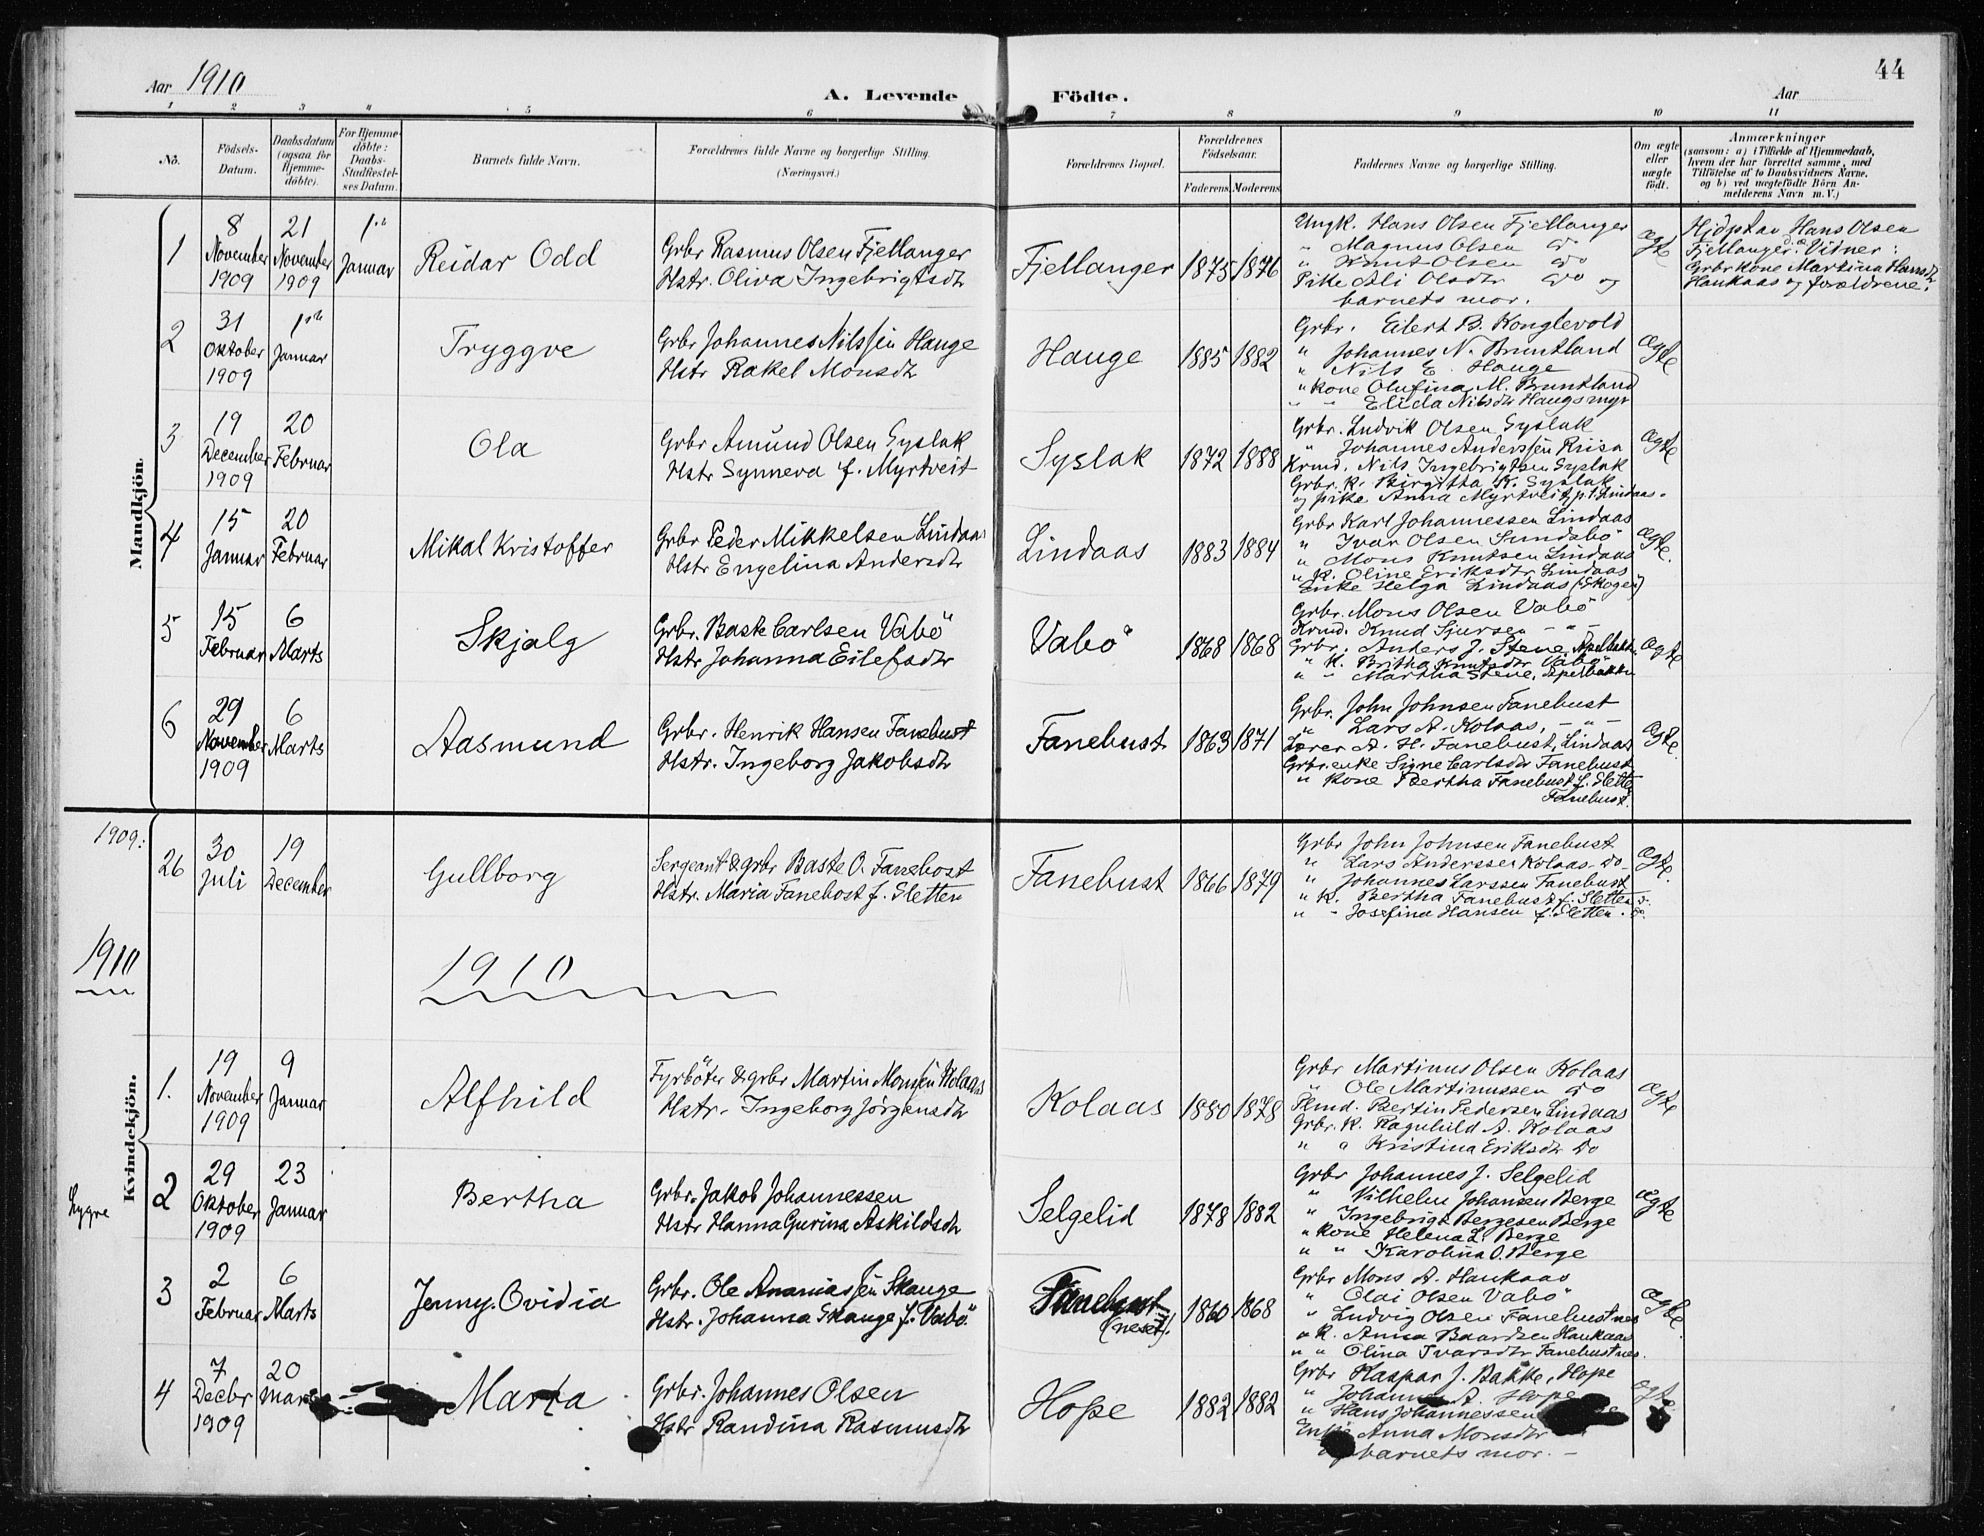 Aar 1910
A. Levende Födte.
Aar
44
1 2 3 4 5 6 7 8 9 10 11
No.
Födsels-Datum.
Daabsdatum (ogsaa for Hjemme-döbte).
For Hjemme-döbte: Daabs-Stadfæstel-ses Datum.
Barnets fulde Navn.
Forældrenes fulde Navne og borgerlige Stilling. (Næringsvei.)
Forældrenes Bopæl.
Forældrenes Födselsaar.
Faderens. Moderens.
Faddernes Navne og borgerlige Stilling.
Om ægte eller uægte födt.
Anmærkninger (saasom: a) i Tilfælde af Hjemmedaab, hvem der har forrettet samme, med Tilföielse af to Daabsvidners Navne, og b) ved uægtefödte Börn An-melderens Navn m. V.)
Mandkjön.
1
8 November 1909
21 November 1909
1ste Januar
Reidar Odd
Grbr Rasmus Olsen Fjellanger
Hstr. Oliva Ingebrigtsdtr
Fjellanger
1875 1876
Ungk. Hans Olsen Fjellanger
" Magnus Olsen do
" Knut Olsen do
Pike Ali Olsdtr do og
barnets mor.
Ægte
Hjdpt av Hans Olsen
Fjellanger. Vitner:
Grbrkone Martina Hansdtr
Haukaas og forældrene.
2
31 Oktober 1909
1ste Januar
Tryggve
Grbr Johannes Nilssen Hauge
Hstr Rakel Monsdtr
Hauge
1885 1882
Grbr. Eilert B. Konglevold
" Johannes N. Bruntland
" Nils E. Hauge
" kone Olufina M. Bruntland
" " Elida Nilsdtr Haugsmyr
Ægte
3
19 December 1909
20 Februar
Ola
Grbr Amund Olsen Syslak
Hstr Synneva f. Myrtveit
Syslak
1872 1888
Grbr. Ludvik Olsen Syslak
" Johannes Anderssen Risa
Krmd. Nils Ingebrigtsen Syslak
Grbr. K. Birgitha K. Syslak
og pike Anna Myrtveit p.t. Lindaas.
Ægte
4
15 Januar
20 Februar
Mikal Kristoffer
Grbr Peder Mikkelsen Lindaas
Hstr Engelina Andersdtr
Lindaas
1883 1884
Grbr Karl Johannessen Lindaas
" Ivar Olsen Sundsbö
" Mons Knutsen Lindaas
" K. Oline Eriksdtr Lindaas
Enke Helga Lindaas (Skogen)
Ægte.
5
15 Februar
6 Marts
Skjalg
Grbr. Baste Carlsen Vabö
Hstr Johanna Eilefsdtr
Vabö
1868 1868
Grbr. Mons Olsen Vabö
Krmd. Knud Sjursen - " -
Grbr. Anders J. Stene, Apelbakke
" K. Britha Knutsdtr Vabö
" - Martha Stene, Apelbakke
Ægte
6
29 November 1909
6 Marts
Aasmund
Grbr. Henrik Hansen Fanebust
Hstr. Ingeborg Jakobsdtr
Fanebust
1863 1871
Grbr. John Johnsen Fanebust
" Lars A. Kolaas, - " -
Lærer A. H. Fanebust, Lindaas
Grbr.enke Signe Carlsdtr Fanebust
" kone Bertha Fanebust f. Sletten
Fanebust.
Ægte.
1909:
26
30 Juli
19 December
Gullborg
Sergeant & grbr Baste O. Fanebost
Hstr. Maria Fanebost f. Sletten
Fanebust
1866 1879
Grbr John Johnsen Fanebust
" Lars Anderssen Kolaas do
" Johannes Larssen Fanebust
" K. Bertha Fanebust f. Sletten do.
" - Josefina Hansen f. Sletten. do.
Ægte.
1910
1910
Kvindekjön.
1.
19 November 1909
9 Januar
Alfhild
Fyrböter & grbr Martin Monsen Kolaas
Hstr. Ingeborg Jörgensdtr
Kolaas
1880 1878
Grbr Martinus Olsen Kolaas
" Ole Martinussen do
Pkmd. Bertin Pedersen Lindaas
Grbr. K. Ragnhild A. Kolaas
" " Kristina Eriksdtr do
Ægte
Lygre
2
29 Oktober 1909
23 Januar
Bertha
Grbr. Jakob Johannessen
Hstr Hanna Gurina Askildsdtr
Selgelid
1878 1882
Grbr Johannes J. Selgelid
" Vilhelm Johansen Berge
" Ingebrigt Bergesen Berge
" kone Helena L. Berge
" " Karolina O. Berge
Ægte
3
2 Februar
6 Marts
Jenny Ovidia
Grbr. Ole Ananiassen Skauge
Hstr. Johanna Skauge f. Vabö
Fanebust (neset).
1860 1868
Grbr Mons A. Haukaas
" Olai Olsen Vabö
" Ludvig Olsen Fanebustnes
" K. Anna Baardsen Haukaas
" " Olina Ivarsdtr Fanebustnes.
Ægte.
4
7 Decbr 1909
20 Marts
Marta
Grbr. Johannes Olsen
Hstr Randina Rasmusdtr
Hope
1882 1882
Grbr Kaspar J. Bakke, Hope
" Johannes A. Hope
" Hans Johannessen
Enke Anna Monsdtr
og barnets mor. -
Ægte